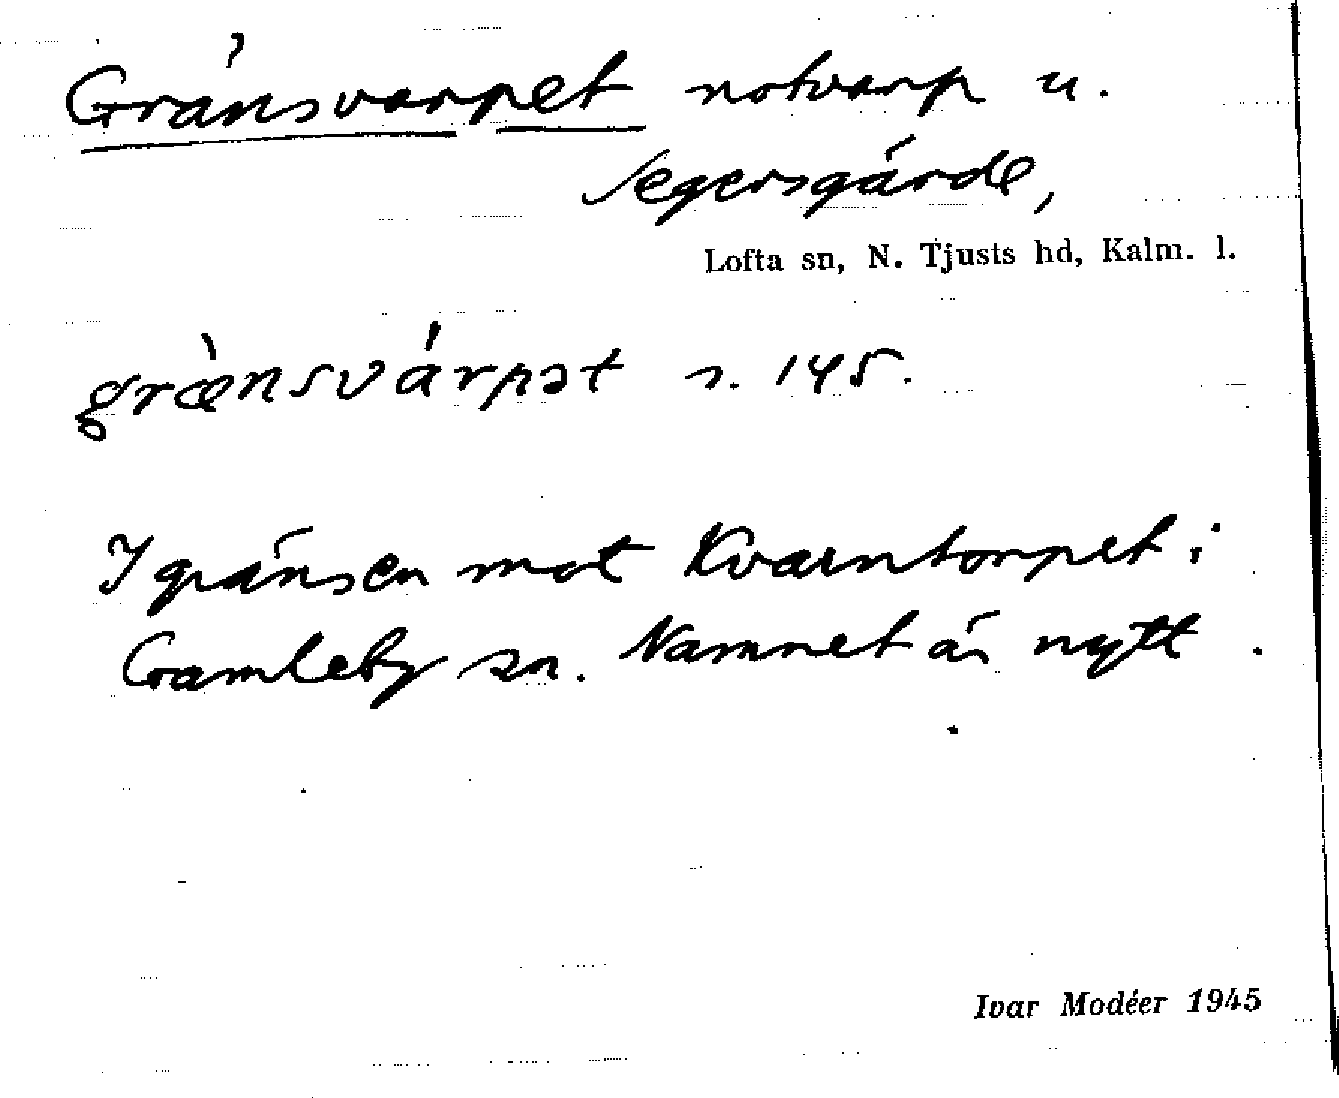 Gränsvarpet notvarp u.
Segersgärde,
Lofta sn, N. Tjusts hd, Kalm. l.
græ̀nsvárpət s. 145.
I gränsen mot Kvarntorpet i
Gamleby sn. Namnet är nytt.
Ivar Modéer 1945